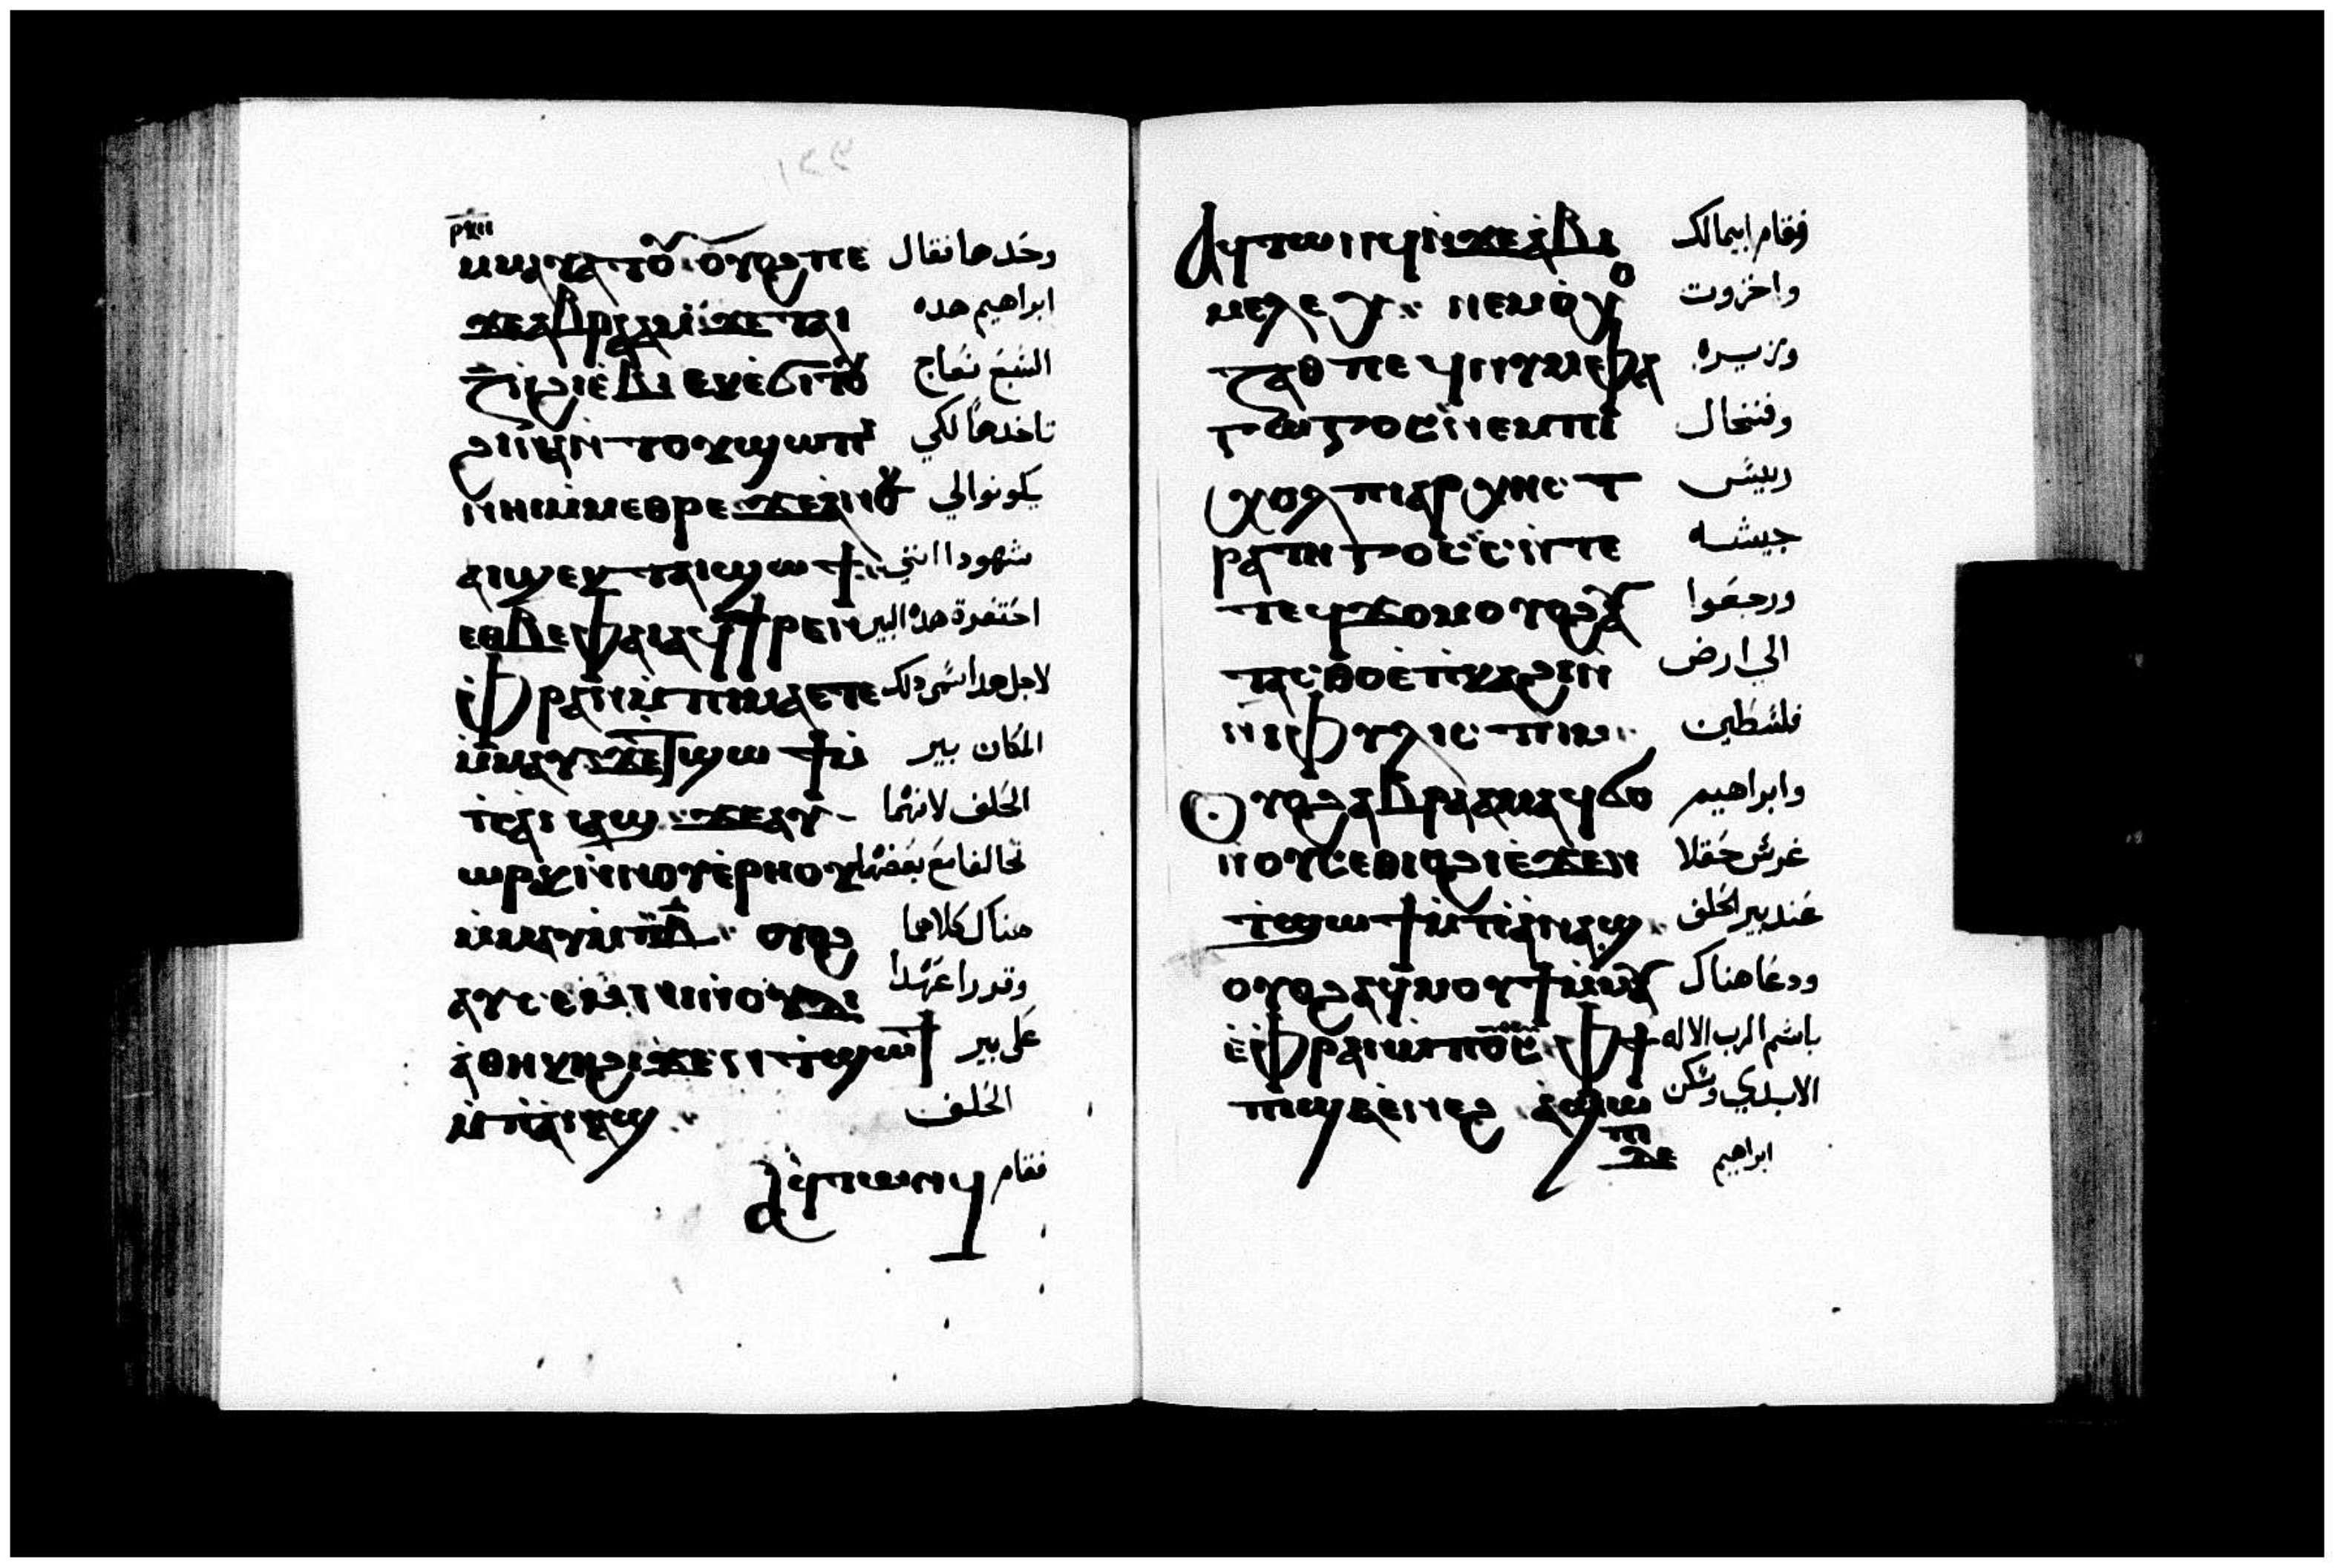 ⲣⲕⲏ
ⲙⲙⲁⲩⲁⲧⲟⲩ ⲟⲩⲟϩ ⲡⲉ وحدها فقال
ϫⲉ ⲁⲃⲣⲁⲁⲙ ϫⲉ ⲧⲁⲓ ابراهيم هده
ⲍ̄ ⲛϩⲓⲉⲃⲓ ⲉⲕⲉϭⲓⲧⲟⲩ السبع نعاج
ϩⲓⲛⲁ ⲛⲧⲟⲩϣⲱⲡⲓ تاخدها لكي
ⲛⲏⲓ ⲙⲙⲉⲑⲣⲉ ϫⲉ ⲁⲛⲟⲕ يكونوا لي
ⲁⲓϣⲉⲕ ⲧⲁⲓϣⲱϯ شهودا انني
ⲉⲑⲃⲉ ⲫⲁⲓ ⲁϥϯⲣⲉⲛ احتفرة هده البير
ⲫⲣⲁⲛ ⲙⲡⲓⲙⲁ ⲉⲧⲉ لاجل هدا سمى دلك
ⲙⲙⲁⲩ ϫⲉ ϯϣⲱϯ ⲛ المكان بير
ⲧⲉ ⲡⲓⲁⲛⲁϣ ϫⲉ ⲁⲩ الحلف لانهما
ⲱⲣⲕ ⲛⲛⲟⲩⲉⲣⲏⲟⲩ تحالفا مع بعضهما
ⲙⲙⲁⲩ ⲙⲡⲃ̄ ⲟⲩⲟϩ هناك كلاهما
ⲁⲩⲥⲉⲙⲛⲓ ⲛⲛⲟⲩⲇⲓ وقررا عهدا
ⲁⲑⲏⲕⲏ ϩⲓϫⲉⲛ ϯϣⲱϯ على بير
ⲙⲡⲓⲁⲛⲁϣ الحلف
ⲁϥⲧⲱⲛϥ فقام
ⲁϥⲧⲱⲛϥ ⲛϫⲉ ⲁⲃⲓ فقام ابيمالك
ⲙⲉⲗⲉⲭ ⲛⲉⲙ ⲟⲭⲟ واخزوت
ⲍⲁⲑ ⲡⲉϥⲛⲩⲙⲫⲁ وزيره
ⲅⲱⲅⲟⲥ ⲛⲉⲙ ⲫⲓ وفنخال
ⲭⲟⲗ ⲡⲓⲁⲣⲭⲏⲥⲧ رييس
ⲣⲁⲧⲏⲅⲟⲥ ⲛⲧⲉ جيشه
ⲧⲉϥϫⲟⲙ ⲟⲩⲟϩ ⲁⲩ ورجعوا
ⲧⲁⲥⲑⲟ ⲉⲡⲕⲁϩⲓ الي ارض
ⲛⲓⲫⲩⲗⲓⲥⲧⲓⲙ فلسطين
ⲟⲩⲟϩ ⲁⲃⲣⲁⲁⲙ ⲁϥϭⲟ وابراهيم
ⲛⲟⲩⲥⲉⲑⲓⲟϩⲓ ⲉϫⲉⲛ غرس حقلا
ϯϣⲱϯ ⲙⲡⲓⲁⲛⲁϣ عند بير الحلف
ⲟⲩⲟϩ ⲁϥⲙⲟⲩϯ ⲙⲙⲁⲩ ودعا هناك
ⲉⲫⲣⲁⲛ ⲙⲡϭⲥ ⲫϯ باسم الرب الاله
ⲡϣⲁⲉⲛⲉϩ ⲁϥϣⲱ الابدي وسكن
ⲡⲓ
ⲛϫⲉ ابراهيم